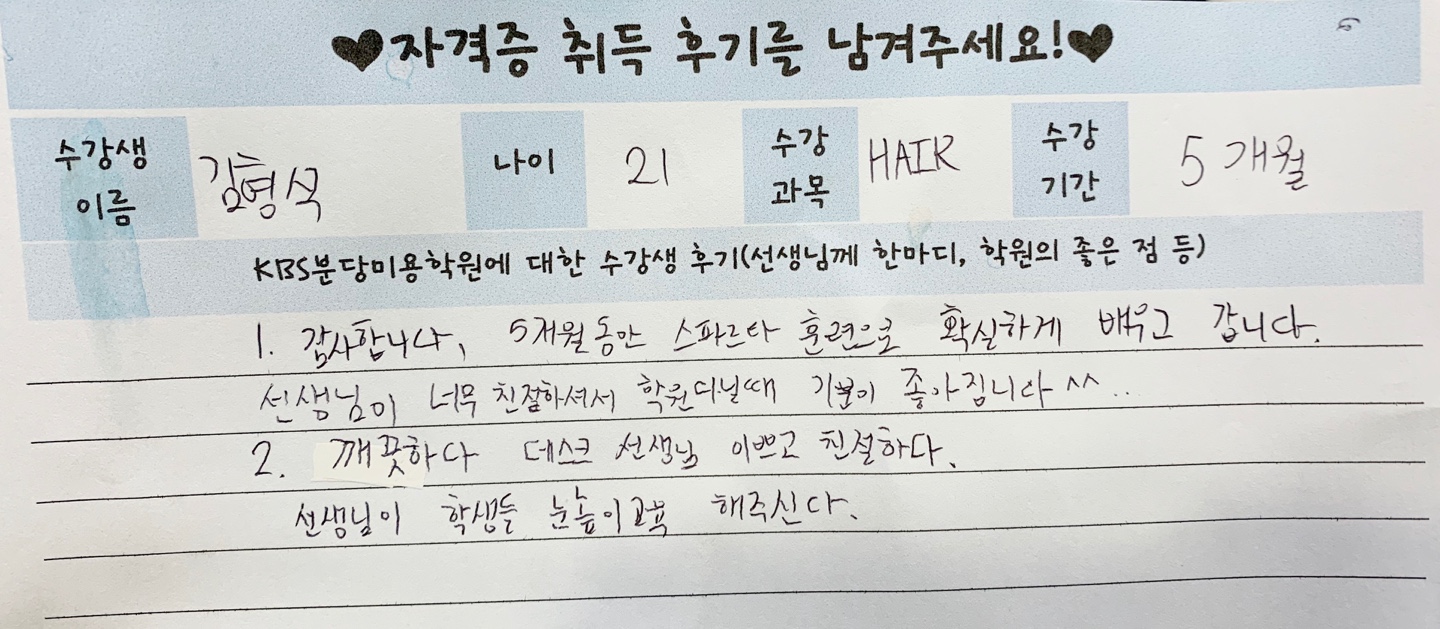 ♥자격증 취득 후기를 남겨주세요!♥
수강생 이름 김형석 나이 21 수강 과목 HAIR 수강 기간 5개월
KBS분당미용학원에 대한 수강생 후기(선생님께 한마디, 학원의 좋은 점 등)
1. 감사합니다, 5개월동안 스파르타 훈련으로 확실하게 배우고 갑니다.
선생님이 너무 친절하셔서 학원다닐때 기분이 좋아집니다^^..
2. 깨끗하다 데스크 선생님 이쁘고 친절하다.
선생님이 학생들 눈높이교육 해주신다.